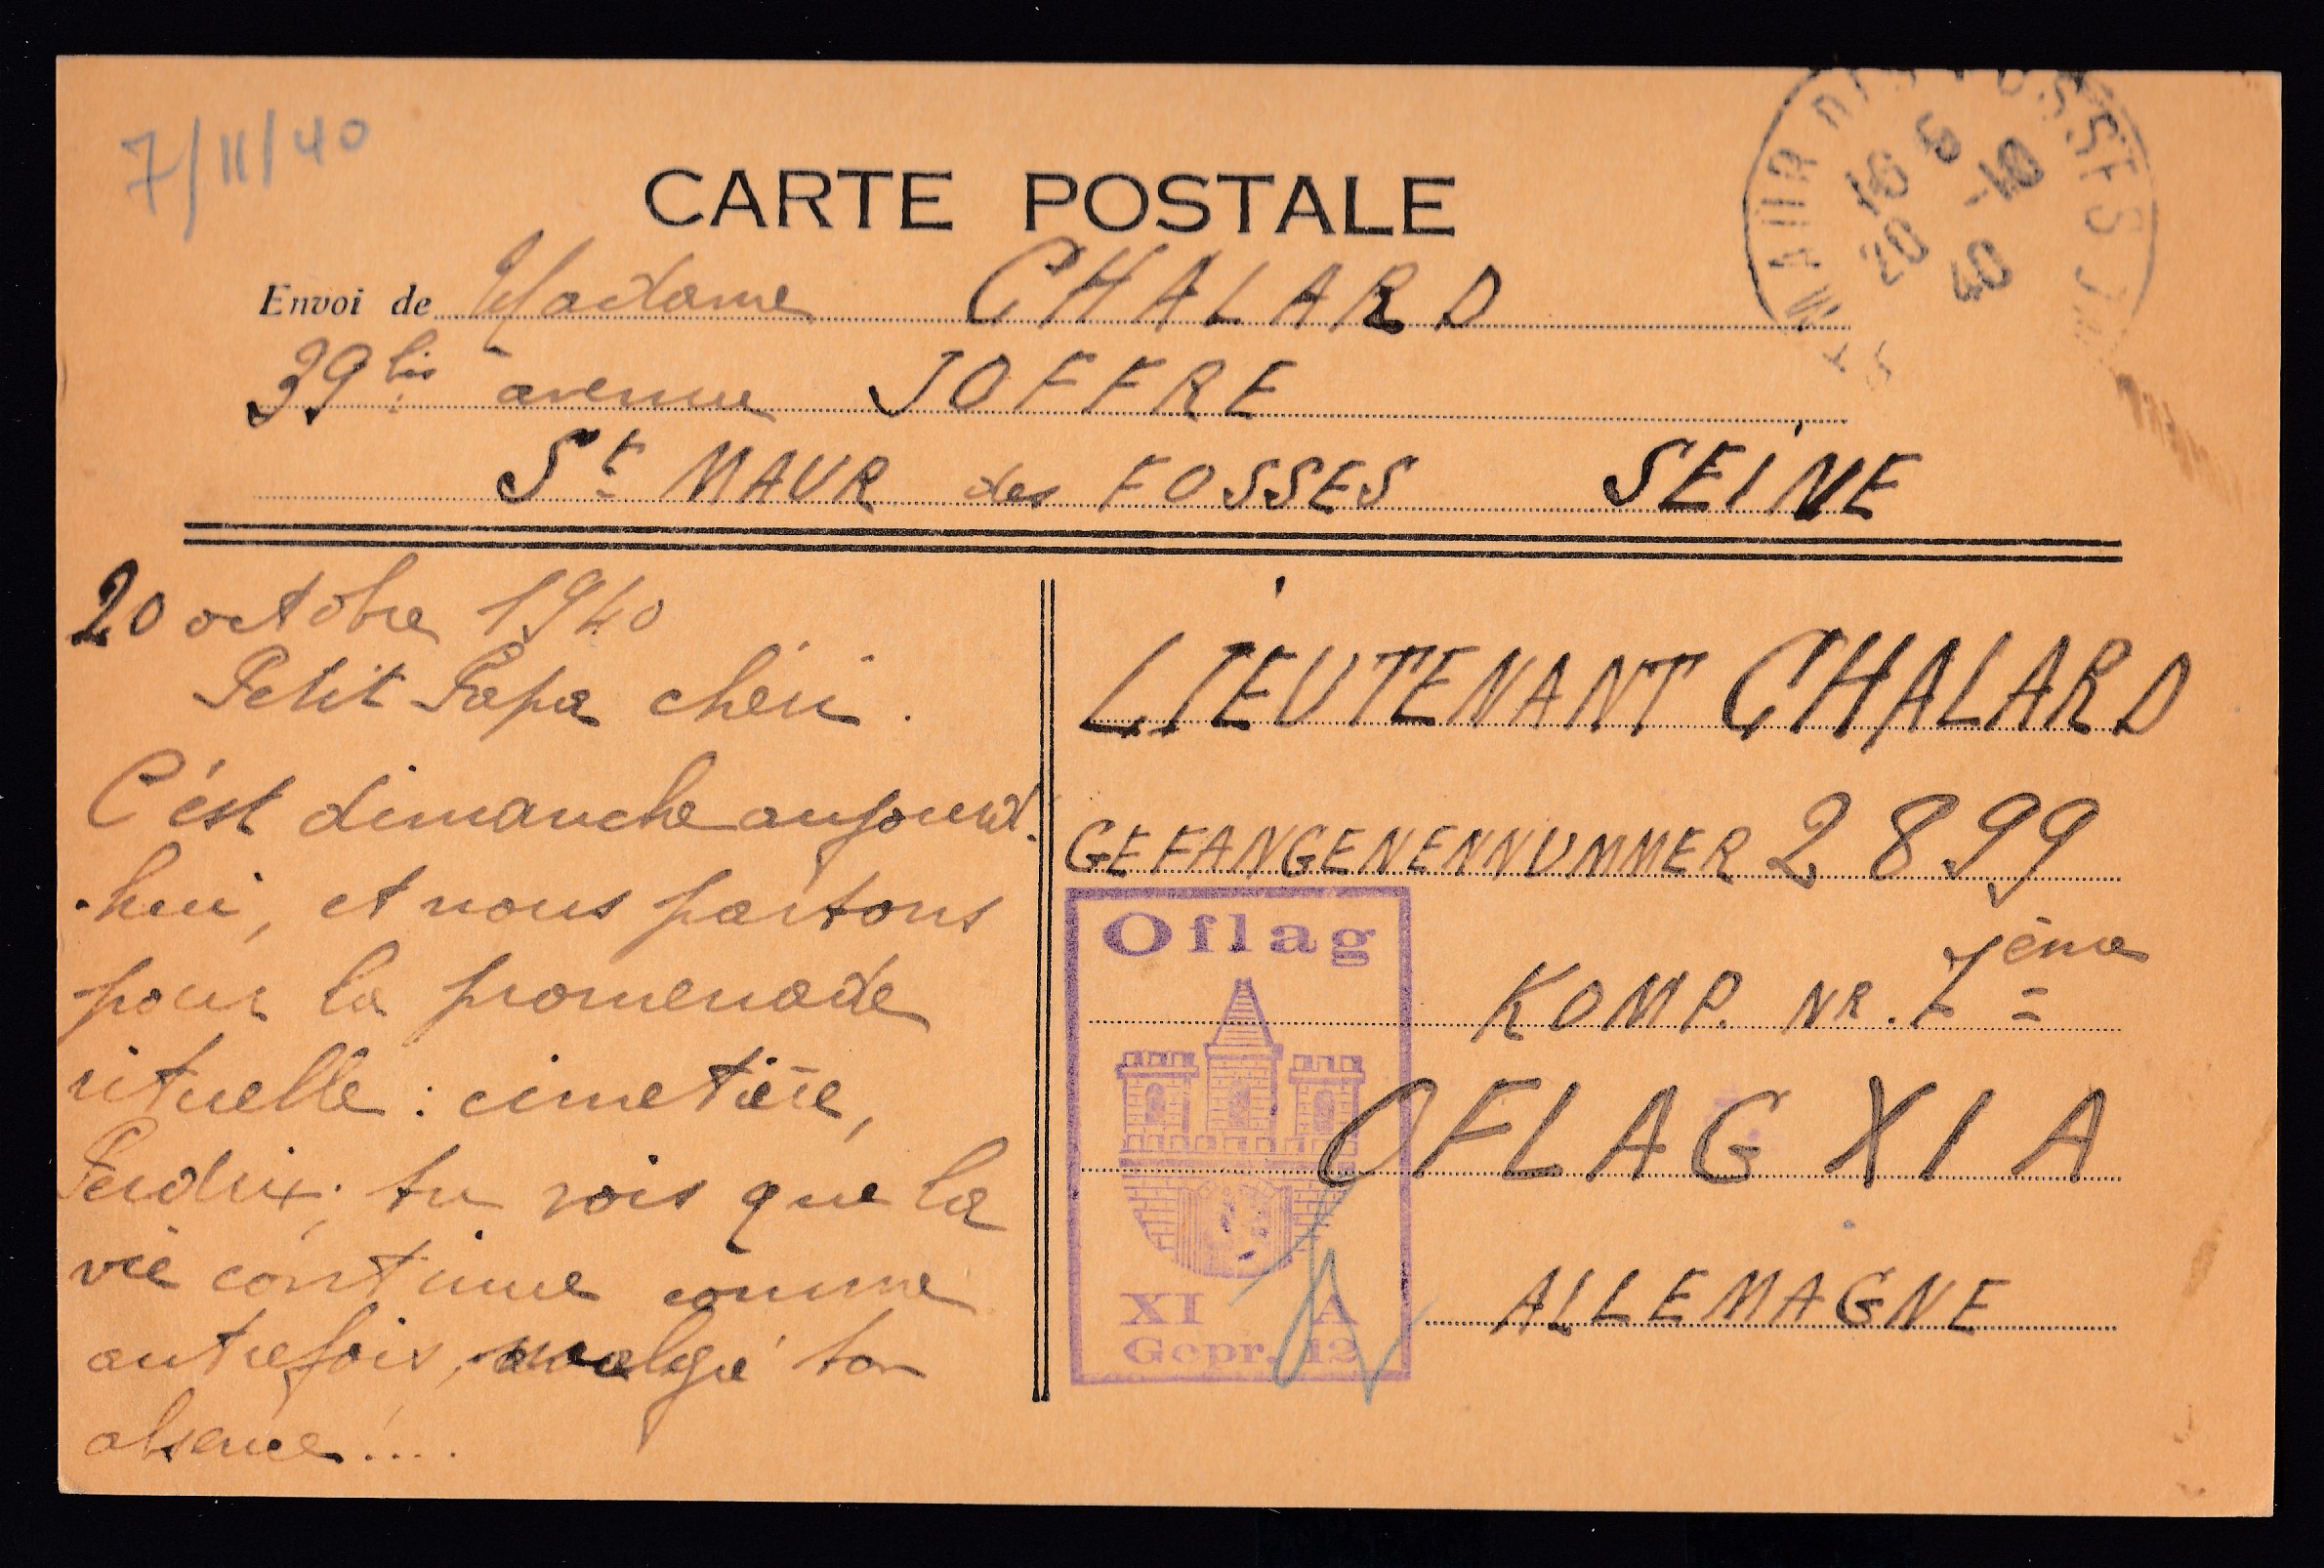 7/11/40
CARTE POSTALE
Envoi de Madame CHALARD
39 bis avenue JOFFRE
St MAUR des FOSSES SEINE
16 20
-10
40
20 octobre 1940
Petit Papa chéri.
C'est dimanche aujourd'
-hui, et nous partons
pour la promenade
rituelle : cimetière,
Perdrix; tu vois que la
vie continue comme
autrefois, malgré ton
absence!....
LIEUTENANT CHALARD
GEFANGENENNUMMER 2899
KOMP. NR. 7ème
OFLAG XI A
ALLEMAGNE
Oflag
XI A
Gepr. 12